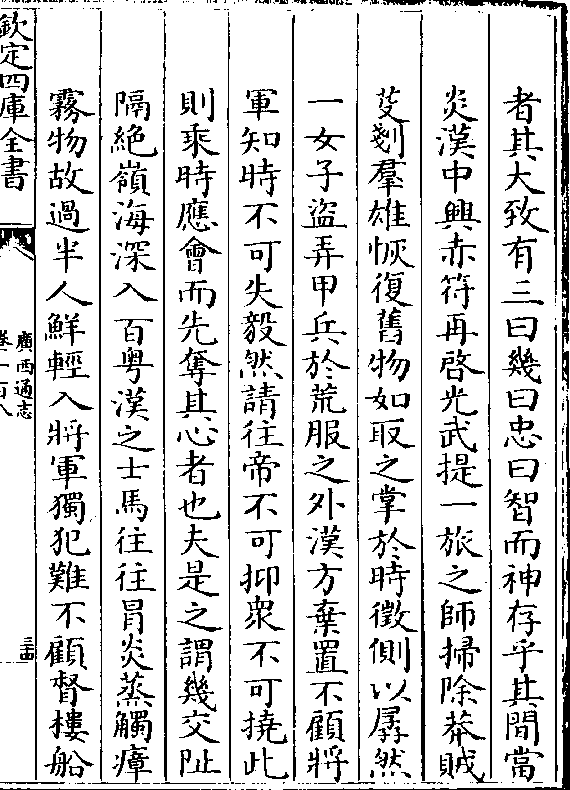 者其大致有三曰幾曰忠曰智而神存乎其間當
炎漢中興赤符再啓光武提一旅之師掃除莽賊
芟剗羣雄恢復舊物如取之掌於時徵側以孱然
一女子盜弄甲兵於荒服之外漢方棄置不顧將
軍知時不可失毅然請往帝不可抑衆不可撓此
則乘時應會而先奪其心者也夫是之謂幾交阯
隔絶嶺海深入百粤漢之士馬往往冐炎蒸觸瘴
霧物故過半人鮮輕入將軍獨犯難不顧督樓船
欽定四庫全書
廣西通志
卷一百八
三十四